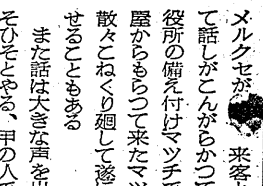 メルクセが 来客
て話しがこんがらかつて
役所の備え付けマツチ
屋からもらつて来たマツ
散々こねくり廻して遂
せることもある
また話は大きな声を出
そひそとやる、甲の人